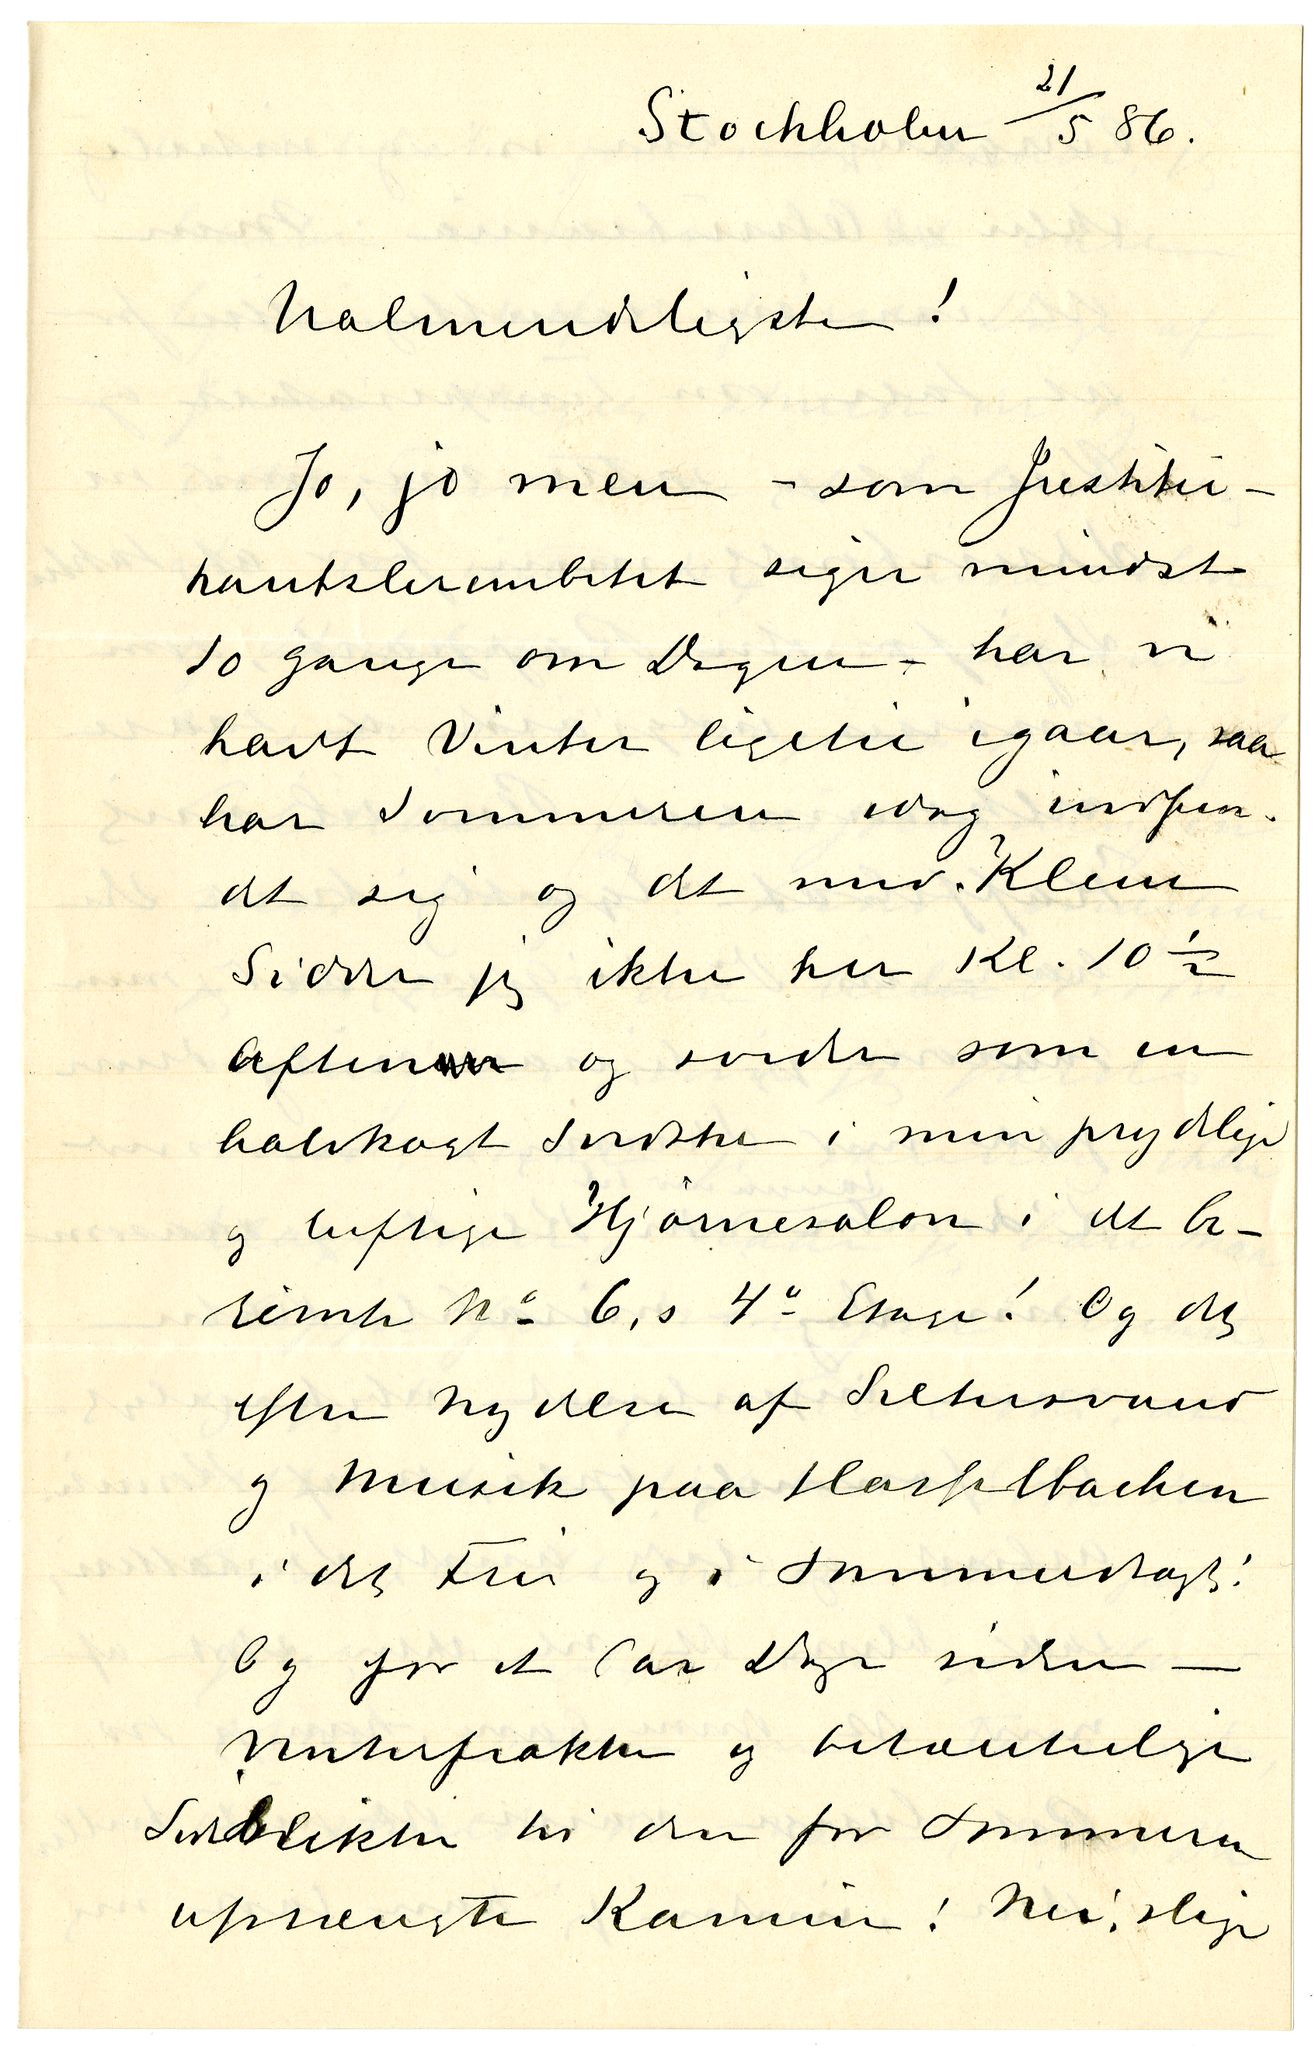 Stockholm 21/5 86.
Halmindeligste!
Jo, jo men – som Justitie-
kantslerembetet siger mindst
10 gange om Dagen – har vi
havt Vinter ligetil igaar, saa
har Sommeren idag indfun-
det sig og det med Klem
Sidder jeg ikke her Kl. 10 1/2
Aften og sveder som en
halvkogt Svidske i min prydelige
og luftige Hjörnesalon i det be-
römte No 6, s 4o Etage! Og det
efter Nydelse af Seltersvand
og Musik paa Hasselbacken
i det Frie og i Sommerdragt!
Og for et Par Dage siden —
Vinterfrakke og betænkelige
Sideblikke til den for Sommeren
afstængte Kamin! Nei, slige